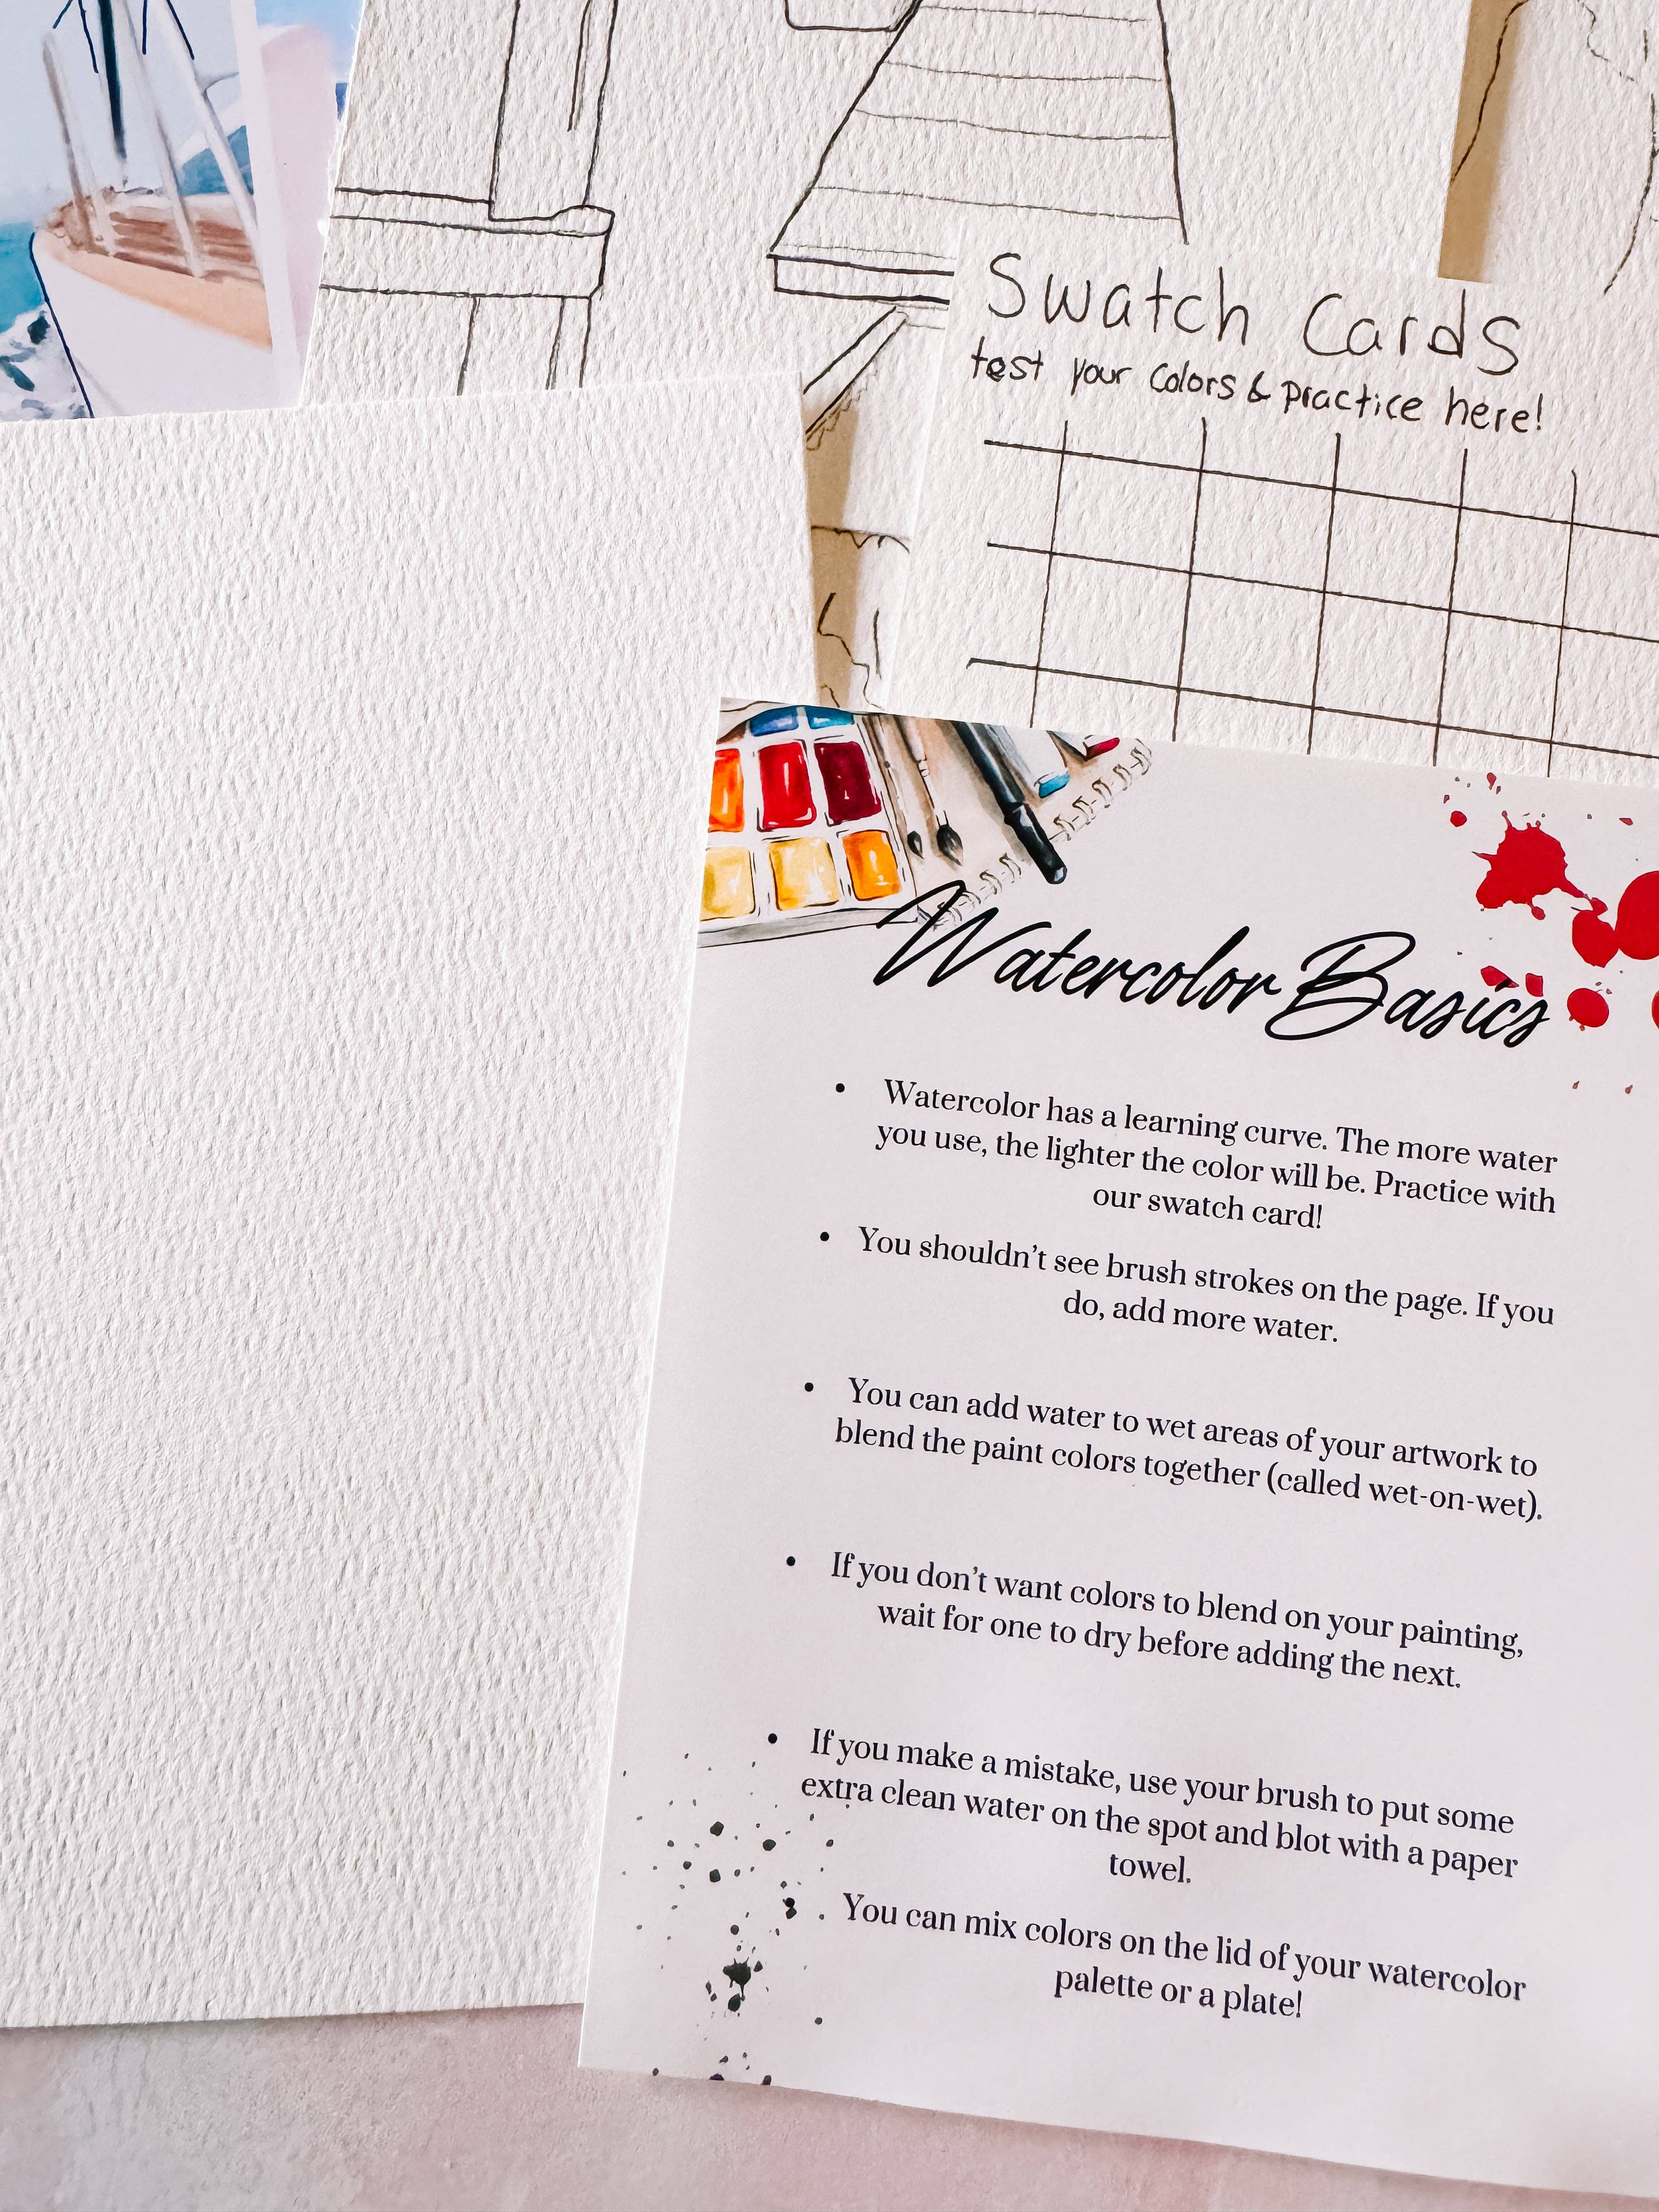 Swatch Cards
test your colors & practice here!
Watercolor Basics
• Watercolor has a learning curve. The more water
you use, the lighter the color will be. Practice with
our swatch card!
• You shouldn't see brush strokes on the page. If you
do, add more water.
• You can add water to wet areas of your artwork to
blend the paint colors together (called wet-on-wet).
• If you don't want colors to blend on your painting,
wait for one to dry before adding the next.
• If you make a mistake, use your brush to put some
extra clean water on the spot and blot with a paper
towel.
• You can mix colors on the lid of your watercolor
palette or a plate!